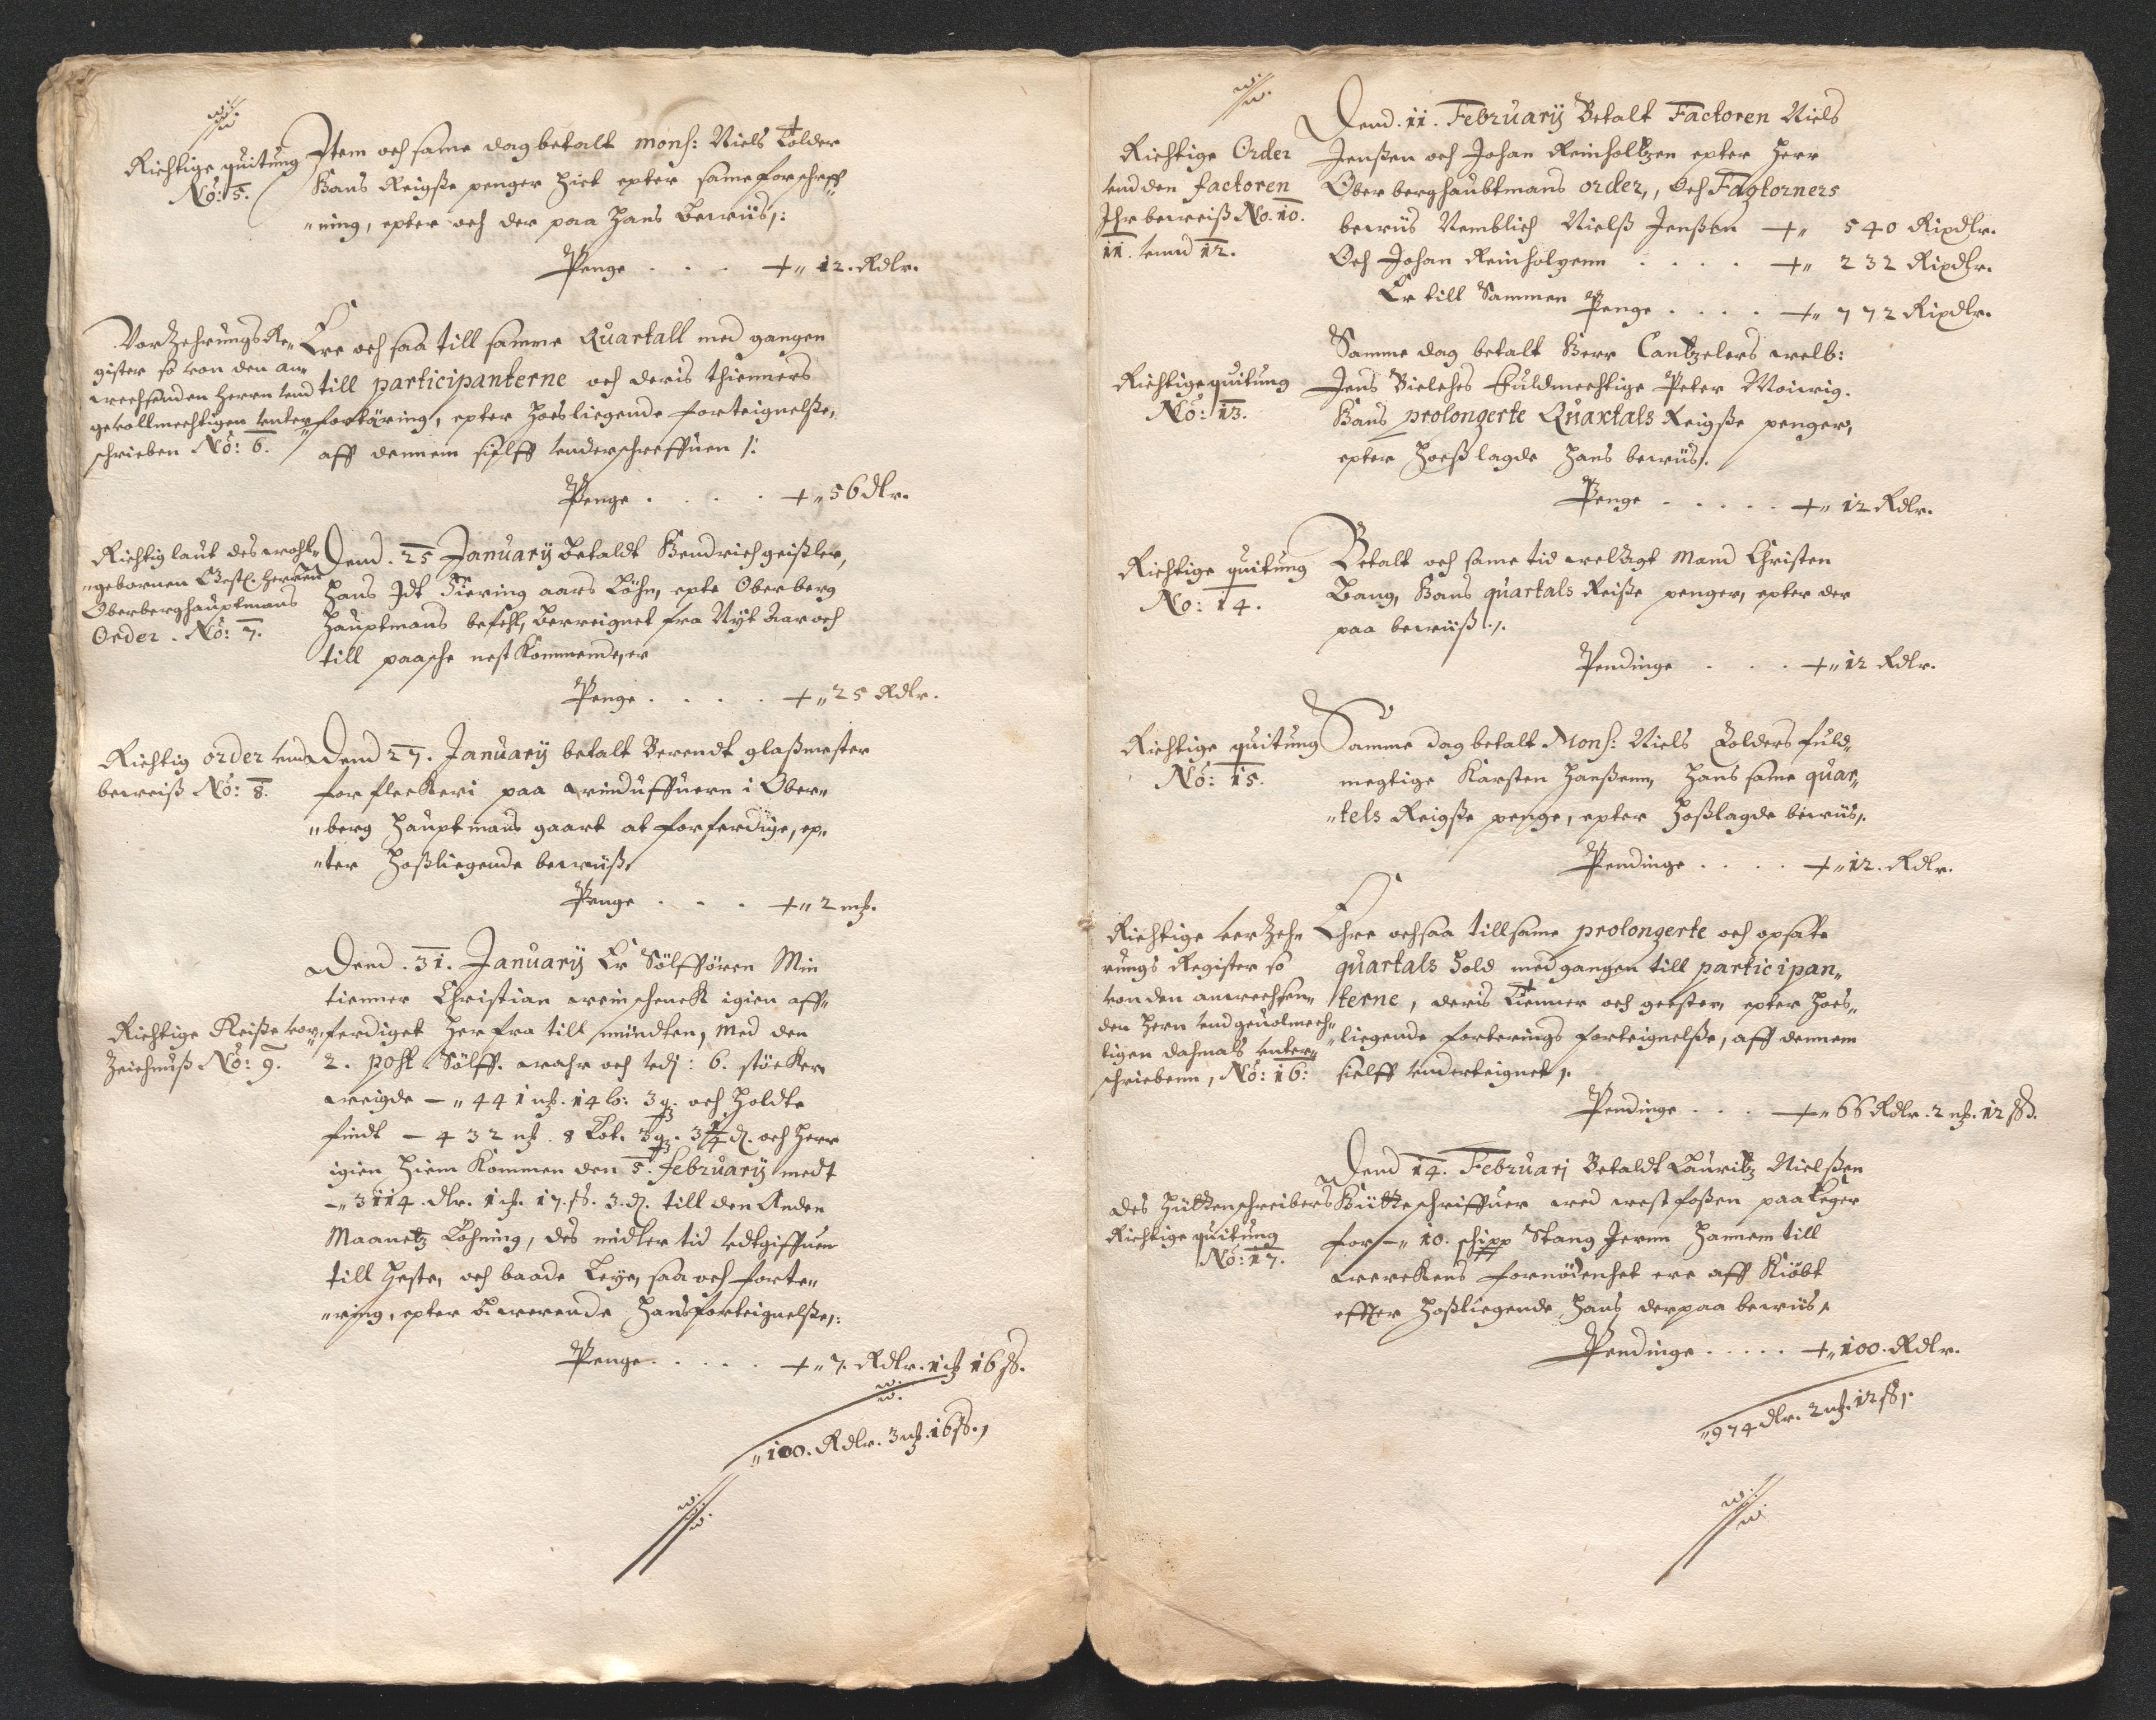 Richtige quitung
No: 5.
Item och same dag betalt Mons: Niels Tolder
Hans Reigsße penger hiit epter same forschreff
"ning, epter och der paa Hans bewiis,:
Penge . . . +„ 12. Rdlr.
VorZehrungs Re„
gister so von den an„
weesenden Herrn und
gevollmechtigen unter„
schrieben No: 6.
Ere och saa till samme Quartall med gangen
till participanterne och deris thienners
fortæring, epter hoesliegende forteignelße,
aff dennem sielff underschreffuen /:
Penge . . . . +„ 56 dlr.
Richtig laut des wohl„
"gebornen Gestr: Herren
Oberberghauptmans
Order. No: 7.
Dend. 25 January betaldt Hendrich geißler,
Hans Jdt fiering aars Löhn, epte Oberberg
Hauptmans befehl, Berreignet fra Nyt Aar och
till paasche nest Kommende, er
Penge . . . . +„ 25 Rdlr.
Richtig order und
beweiß No: 8.
Dend 27. January betalt Berendt glaßmester
for fleckeri paa winduffuern i Ober„
"berg Hauptmans gaart at forferdige, ep„
"ter hoßliegende bewiiß,
Penge . . . +„ 2 mk.
Richtige Reiße vor„
Zeichnuß No: 9.
Dend. 31. January Er Sölffören Min
tienner Christian weinschenck igien aff„
"ferdiget her fra till mündten, Med den
2. post Sölff. wahr och udj: 6. stöcker
weigde –„ 441 mk. 14 lb: 3 q. och Holdte
findt – 432 mk. 8 Lot. 3 q. 3 1/4 d. och Herr
igien Hiem Kommen den 5. february medt
–„ 3114. dlr. 1 mk. 17. ß. 3. d. till den Anden
Maanetz Löhning, des midler tid udtgiffuen
till Heste, och baade Leye, saa och forte„
"ring, epter bewerende Hans forteignelße,:
Penge . . . . +„ 7. Rdlr. 1 mk 16 ß.
„ 100. Rdlr. 3 mk. 16 ß.,
Richtige Order
und den factoren
Ihr beweiß No. 10.
11. unnd 12.
Dend. 11. February Betalt Factoren Niels
Jenßen och Johan Reinholtzen epter Herr
Oberberghaubtmans order,, Och Fagtorners
bewiis Nemblich Nielß Jenßen +„ 540 Rixdlr.
Och Johan Reinholzenn . . . . +„ 232 Rixdlr.
Er till Sammen Penge . . . . +„ 772 Rixdlr.
Richtige quitung
No: 13.
Samme dag betalt Herr Cantzelers welb:
Jens Bielckes Fuldmechtige Peter Moirig.
Hans prolongerte Quartals Reigße penger,
epter Hoeßlagde Hans bewiis/.
Penge . . . . . +„ 12 Rdlr.
Richtige quitung
No: 14.
Betalt och same tid welagt Mand Christen
Bang, Hans quartals Reiße penger, epter der
paa bewiiß ./.
Pendinge . . . +„ 12 Rdlr.
Richtige quitung
No: 15.
Samme dag betalt Mons: Niels Tolders fuld„
megtige Karsten Hanßenn, Hans same quar„
"tels Reigße penge, epter hoßlagde bewiis,.
Pendinge . . . . +„ 12. Rdlr.
Richtige verZeh„
rungs Register so
von den anweesen„
den Hern und gevolmech„
tigen dahmals unter„
schriebenn, No: 16:
Ehre och saa till same prolongerte och opsatte
quartals hold med gangen till participan„
terne, deris tienner och geester, epter Hoes„
"liegende forterings forteignelße, aff dennem
sielff underteignet /.
Pendinge . . . +„ 66 Rdlr. 2 mk. 12 ß.
des Hüttenschreibers
Richtige quitung
No: 17.
Dend 14. Februarj Betaldt Lauritz Nielßen
Hütteschriffuer wed westfoßen paa Eger
for –„ 10. schipp Stang Jernn Hannem till
werckens fornödenhet ere aff Kiöbt
effter hoßliegende Hans derpaa bewiis /.
Pendinge . . . . . +„ 100. Rdlr.
„ 974 dlr. 2 mk. 12 ß /.